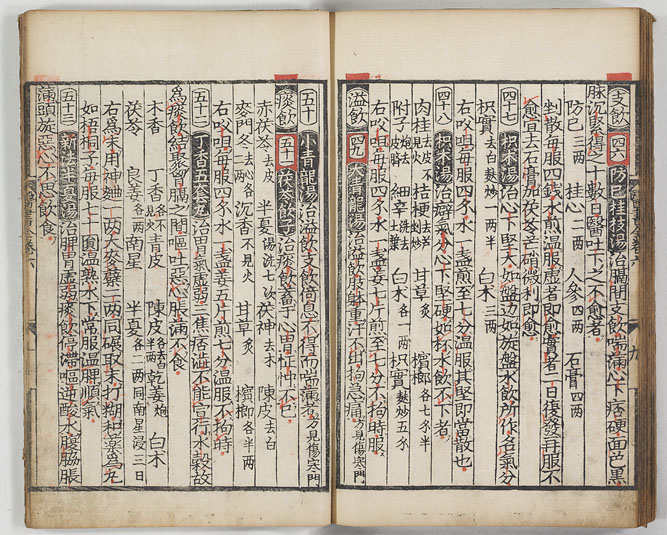 支飲 四六 防己桂枝湯 治膈間支飲喘滿心下痞硬面色黒
脉沉緊得之十數日醫吐下之不愈者
防己三兩 桂心二兩 人參四兩 石膏四兩
剉散每服四錢水煎温服虛者即愈實者三日復發再服不
愈宜去石膏加茯苓芒硝微利即愈
四十七 枳朮湯 治心下堅大如盤邊如旋盤水飲所作名氣分
枳實去白麩炒一兩半 白朮三兩
右㕮咀每服四錢水一盞煎至七分温服其堅即當散也
四十八 枳朮湯 治癖氣分心下堅硬如杯水飲不下者
肉桂去皮不見火 桔梗去蘆剉炒 甘草炙 檳榔各七錢半
附子炮去皮臍 細辛洗去葉 白朮各一兩 枳實麩炒五錢
右㕮咀每服四錢水一盞姜七片煎至七分不拘時服
溢飲 四九 大青龍湯 治溢飲肢體重汗不出拘急痛方見傷寒門
五十 小青龍湯 治溢飲支飲倚息不得而喘滿者方見傷寒門
痰飲 五十一 茯苓飲子 治痰飲蓄于心胃怔忡不已
赤茯苓去皮 半夏湯洗七次 茯神去木 陳皮去白
麥門冬去心各一兩 沉香不見火 甘草炙 檳榔各半兩
右㕮咀每服四錢水一盞姜五片煎七分温服不拘時
五十二 丁香五套丸 治胃氣虛弱三焦痞澁不能宣行水穀故
為痰飲結聚胷膈之間嘔吐惡心脹滿不食
木香 丁香各不見火 青皮 陳皮各去白半兩 乾姜炮 白朮
茯苓 良姜各一兩 南星 半夏各二兩同南星浸三日
右為末用神麯一兩大麥蘗二兩同碾取末打糊和藥為丸
如梧桐子每服七十圓温熟水下常服温脾順氣
五十三 新法半夏湯 治脾胃虛弱痰飲停滯嘔逆酸水腹脇脹
滿頭旋惡心不思飲食